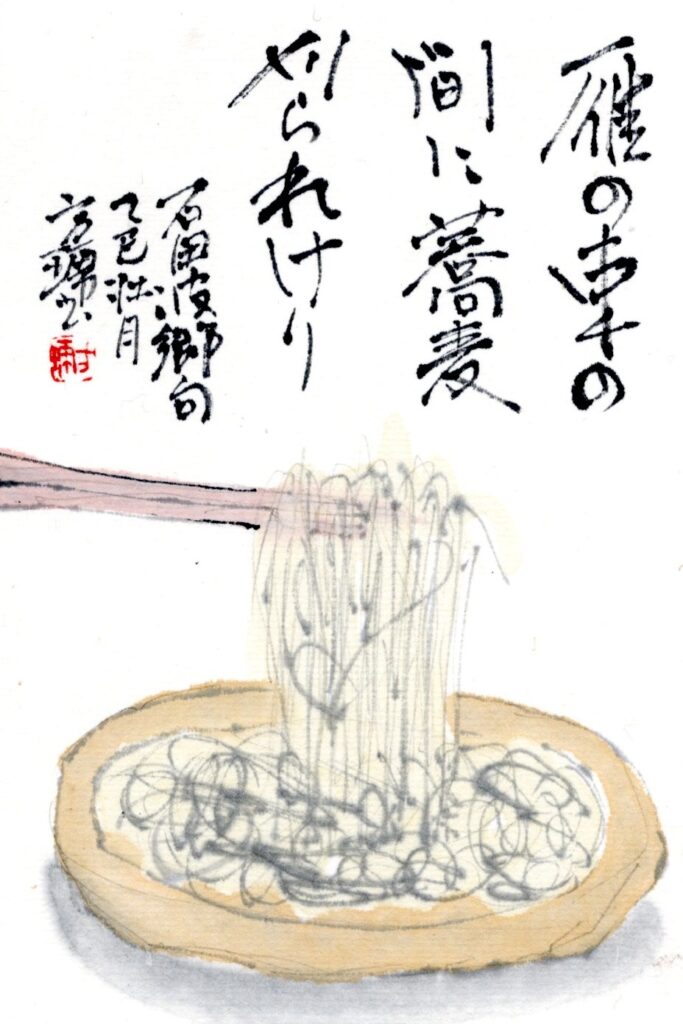 雁の束の
間に蕎麦
刈られけり
石田波郷句
乙巳壮月